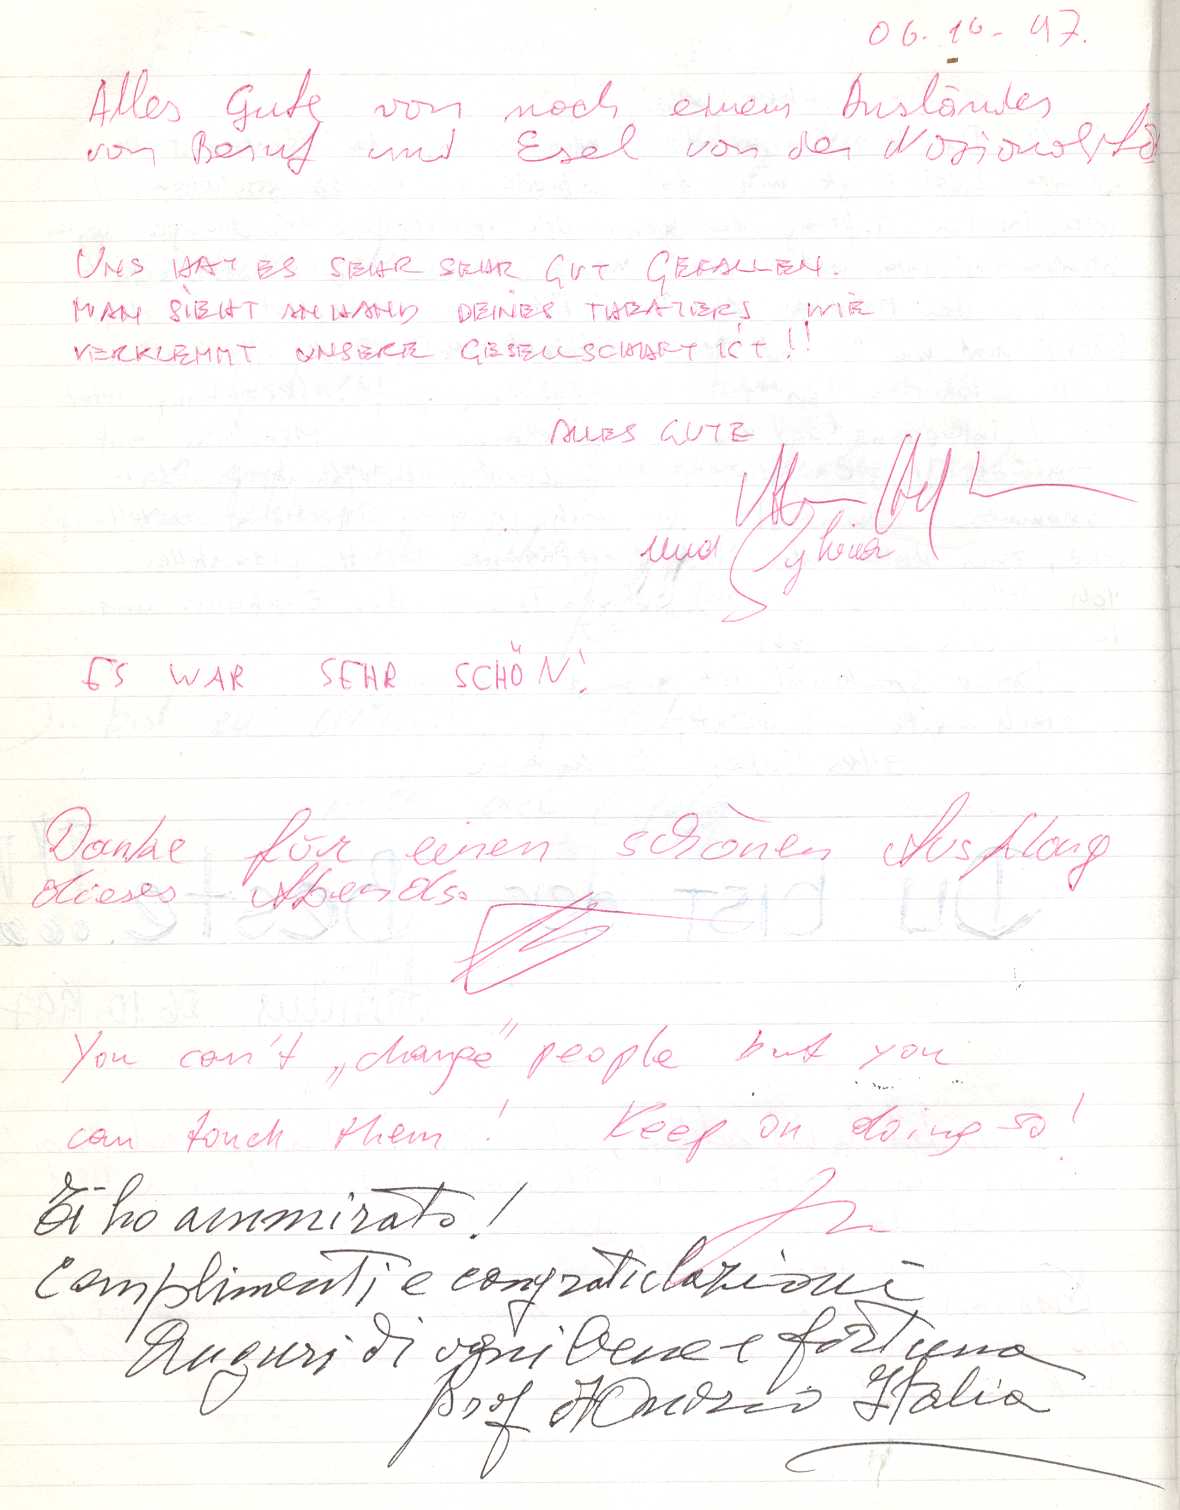 06. 10. 97.
Alles Gute von noch einem Ausländer
von Beruf und Esel von der Nazionalität
UNS HAT ES SEHR SEHR GUT GEFALLEN.
MAN SIEHT ANHAND DEINES THEATERS WIE
VERKLEMMT UNSERE GESELLSCHAFT IST!!
ALLES GUTE
und Sylvia
ES WAR SEHR SCHÖN!
Danke für einen schönen Ausklang
dieses Abends.
You can't „change" people but you
can touch them! Keep on doing so!
Ti ho ammirato!
Complimenti e congratulazioni
Auguri di ogni bene e fortuna
Prof Italia